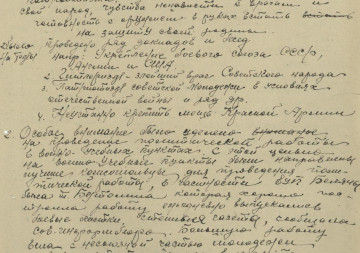 свой народ, чувства ненависти к врагам и
готовности с оружием в руках встать
на защиту своей родины
Было проведено ряд докладов и бесед
на темы: Укрепление боевого союза СССР,
Англии и США
2. Гитлеризм - злейший враг Советского народа
3. Патриотизм советской молодежи в условиях
отечественной войны и ряд др.
4. Неустанно крепить мощь Красной Армии
Особое внимание было уделено
на проведение политической работы
в военно-учебных пунктах. С этой целью
на военно-учебные пункты были направлены
лучшие комсомольцы для проведения поли-
тической работы, в частности ВУП
была т. которая хорошо по-
строила работу ежедневно выпускались
боевые листки, стенные газеты, сообщала
сов. информбюро. Большую работу
вела с несоюзной частью молодежи